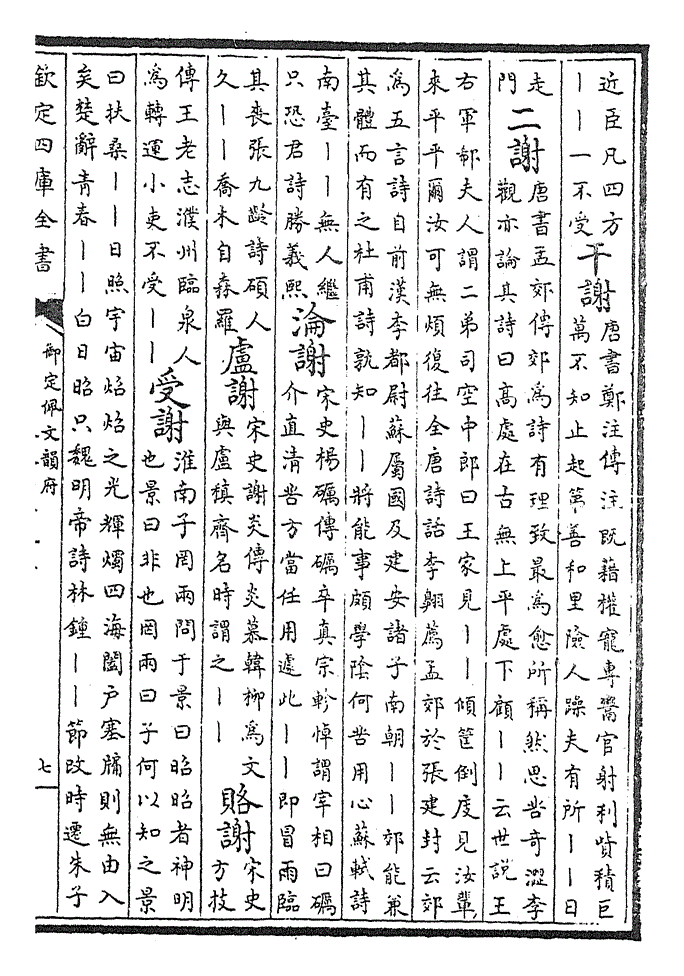 近臣凡四方
——一不受
干謝
唐書鄭注傳注既藉權寵專鬻官射利貲積巨
萬不知止起第善和里險人躁夫有所——日
走
門
二謝
唐書孟郊傳郊為詩有理致最為愈所稱然思苦奇澀李
觀亦論其詩曰高處在古無上平處下顧——云世說王
右軍郗夫人謂二弟司空中郎曰王家見——傾筐倒庋見汝輩
來平平爾汝可無煩復往全唐詩話李翺薦孟郊於張建封云郊
為五言詩自前漢李都尉蘇屬國及建安諸子南朝——郊能兼
其體而有之杜甫詩孰知——將能事頗學陰何苦用心蘇軾詩
南臺——無人繼
只恐君詩勝義熙
淪謝
宋史楊礪傳礪卒真宗軫悼謂宰相曰礪
介直清苦方當任用遽此——即冒雨臨
其喪張九齡詩碩人
久——喬木自森羅
盧謝
宋史謝炎傳炎慕韓柳為文
與盧稹齊名時謂之——
賂謝
宋史
方技
傳王老志濮州臨泉人
為轉運小吏不受——
受謝
淮南子罔兩問于景曰昭昭者神明
也景曰非也罔兩曰子何以知之景
曰扶桑——日照宇宙焰焰之光輝燭四海闔户塞牖則無由入
矣楚辭青春——白日昭只魏明帝詩林鐘——節改時遷朱子
欽定四庫全書
御定佩文韻府
七